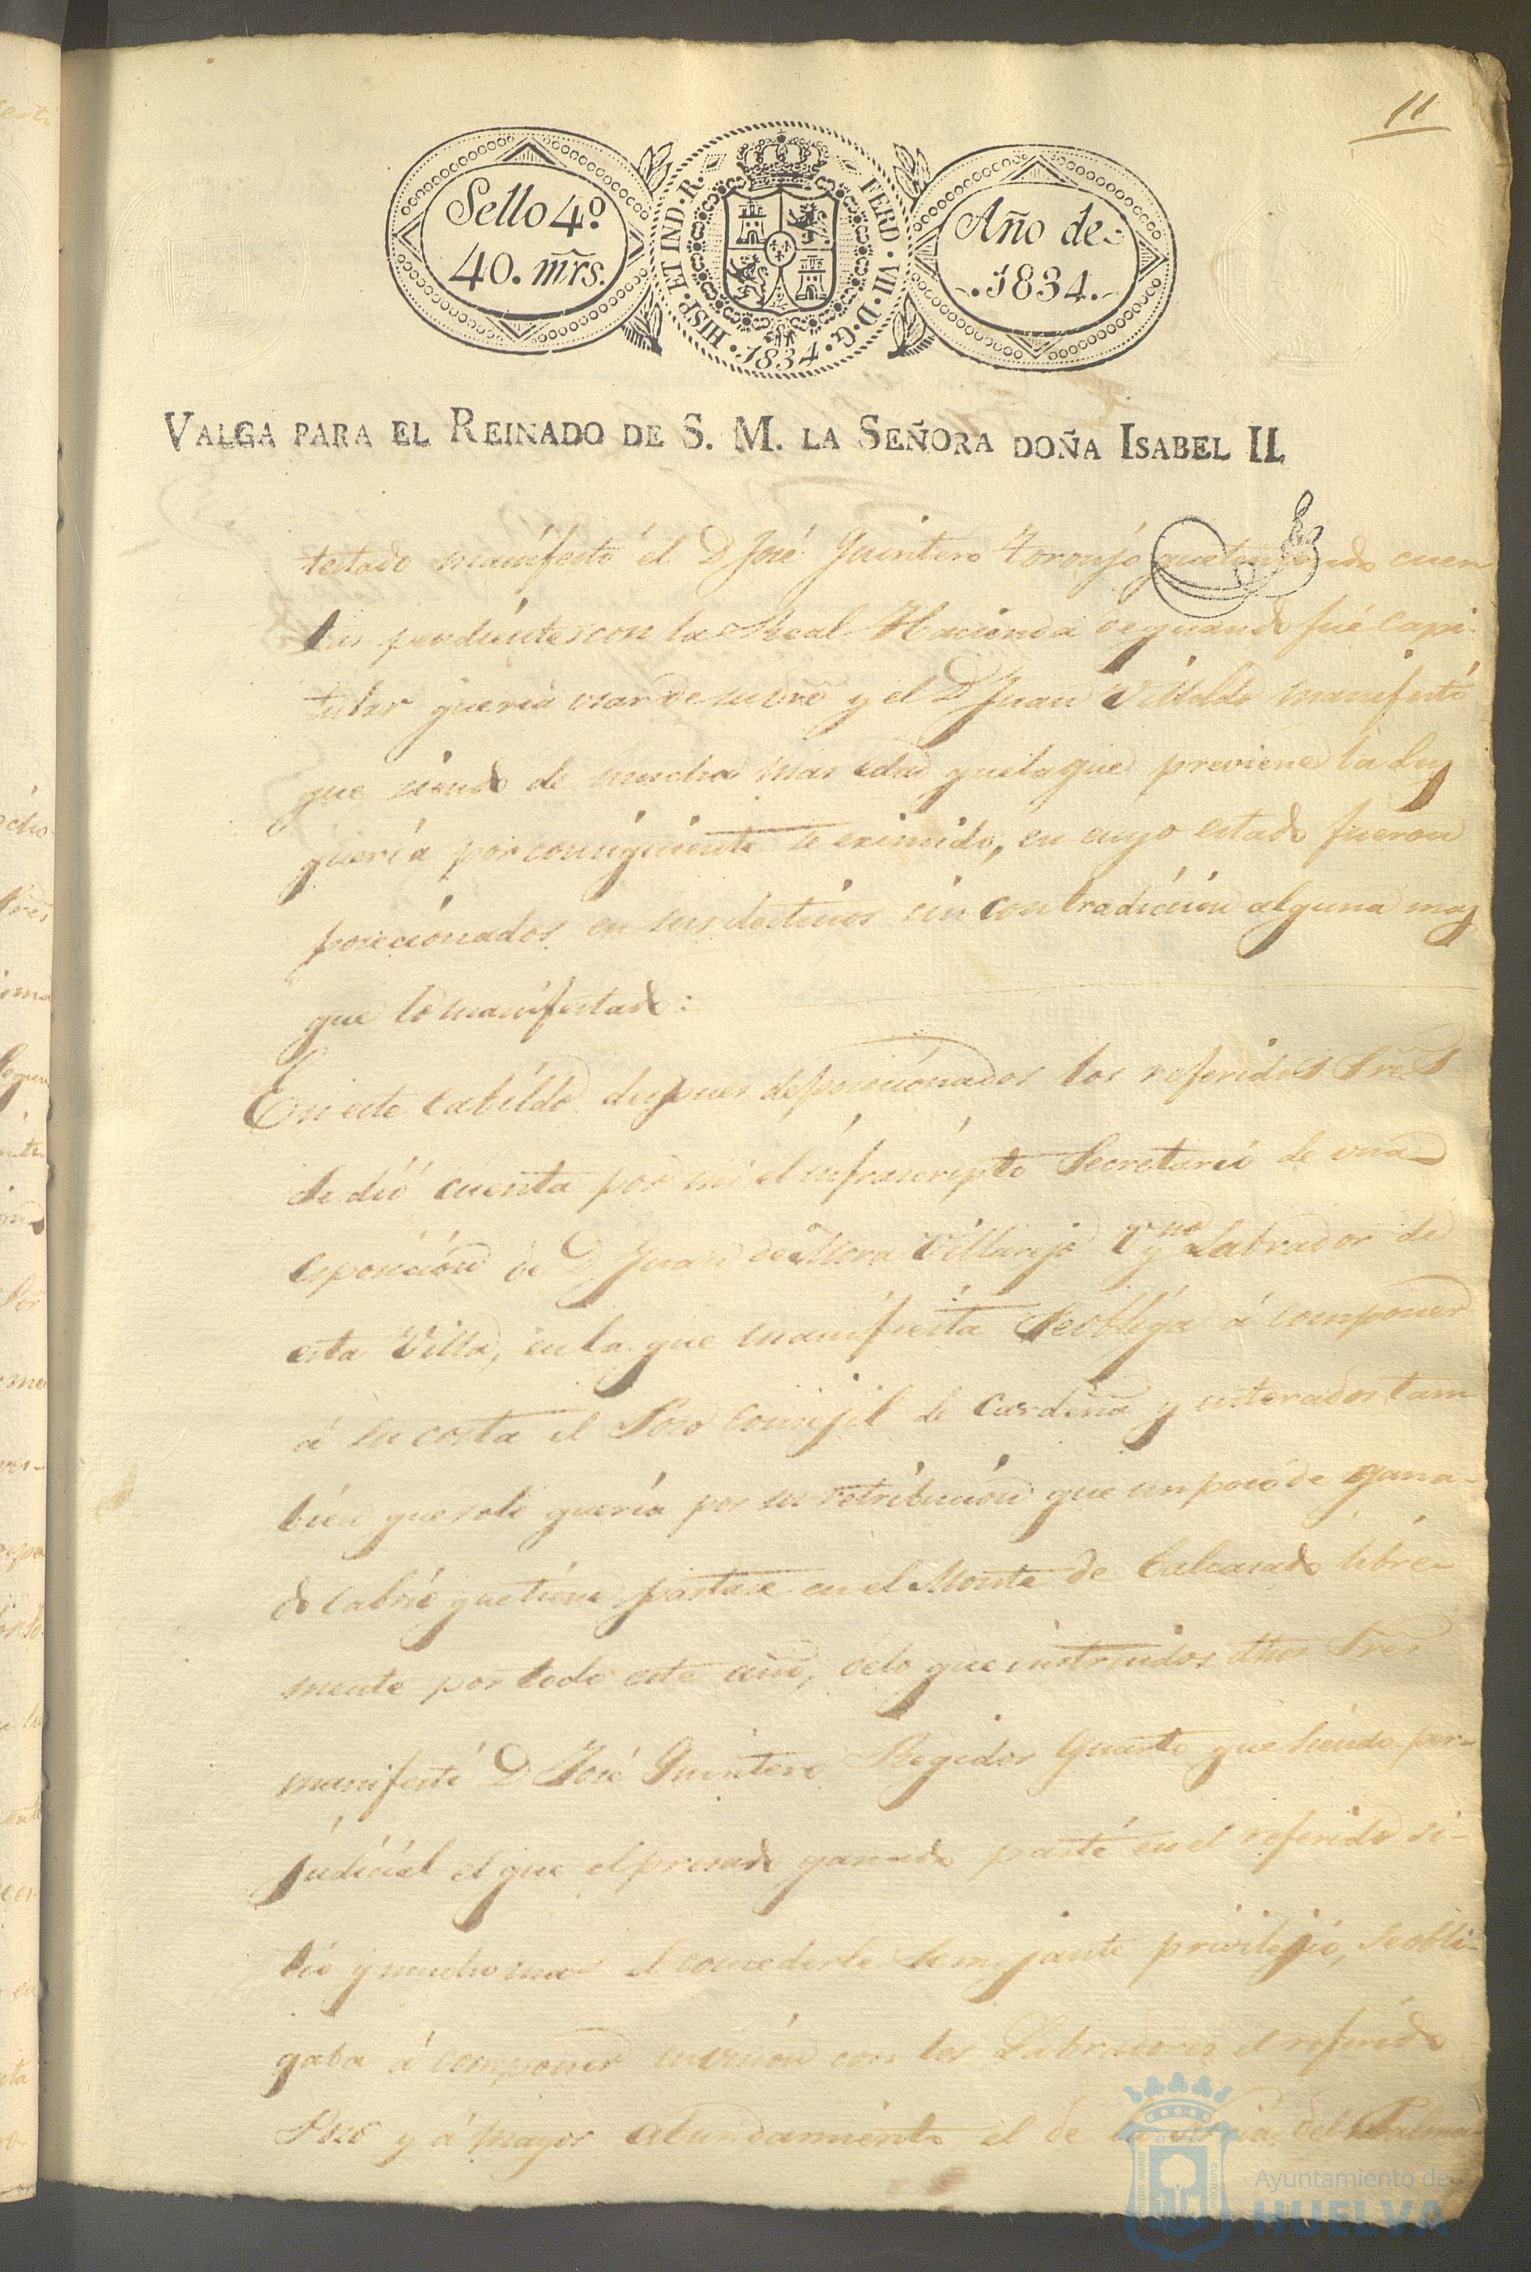 11
Sello 4º
40. mrs.
HISP. ET IND. R.
FERD. VII. D. G.
1834.
Año de
1834.
VALGA PARA EL REINADO DE S. M. LA SEÑORA DOÑA ISABEL II.
testado manifestó el D José Quintero Toronjo que teniendo cuen
tas pendientes con la Real Hacienda de quando fué Capi-
tular queria usar de su dro y el D Juan Villalda manifestó
que siendo de mucha mas edad que la que previene la ley
quería por consiguiente se eximido, en cuyo estado fueron
posecionados en sus destinos sin contradicion alguna mas
que lo manifestado:
En este Cabildo despues de posecionados los referidos Sres
se dió cuenta por mi el infrascripto Secretario de una
esposición de D Juan de Mora Villarejo Vno y Labrador de
esta Villa, en la que manifiesta se obliga á componer
á su costa el Poso Consejil de Cardeña y enterados tam
bien que solo queria por su retribucion que un poco de gana-
do Cabrío que tiene pastase en el Monte de Calcasado libre-
mente por todo este año, de lo que instruidos dhos Sres
manifestó D José Quintero Regidor Quarto que siendo per-
judicial el que el presado ganado paste en el referido si-
tio y mucho mas el concederle semejante privilegio, se obli-
gaba á componer en union con los Labradores el referido
Poso y á mayor abundamiento el de la del Palma
Ayuntamiento de
HUELVA